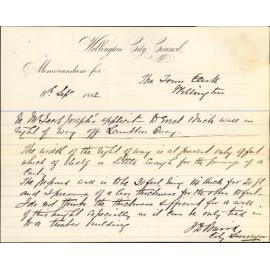 Wellington City Council.
Memorandum for
The Town Clerk
Wellington
11th Sept 1882
Re Mr Jacob Joseph's application to Erect 14 inch wall in
right of way off Lambton Quay.
The width of the right of way is at present only 9 feet
which of itself is little enough for the passage of a
Cart.
The proposed wall is to be 20 feet long 14 inch thick for 20 ft
and I presume of a less thickness for the other
I do not think the thickness sufficient for a wall
of this height especially as it can be only tied in
to a timber building
City Surveyor